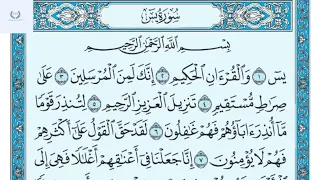 سُورَةُ يسٓ
بِسْمِ ٱللَّهِ ٱلرَّحْمَٰنِ ٱلرَّحِيمِ
يسٓ ١ وَٱلْقُرْءَانِ ٱلْحَكِيمِ ٢ إِنَّكَ لَمِنَ ٱلْمُرْسَلِينَ ٣ عَلَىٰ
صِرَٰطٍ مُّسْتَقِيمٍ ٤ تَنزِيلَ ٱلْعَزِيزِ ٱلرَّحِيمِ ٥ لِتُنذِرَ قَوْمًا
مَّآ أُنذِرَ ءَابَآؤُهُمْ فَهُمْ غَٰفِلُونَ ٦ لَقَدْ حَقَّ ٱلْقَوْلُ عَلَىٰٓ أَكْثَرِهِمْ
فَهُمْ لَا يُؤْمِنُونَ ٧ إِنَّا جَعَلْنَا فِىٓ أَعْنَٰقِهِمْ أَغْلَٰلًا فَهِىَ إِلَى